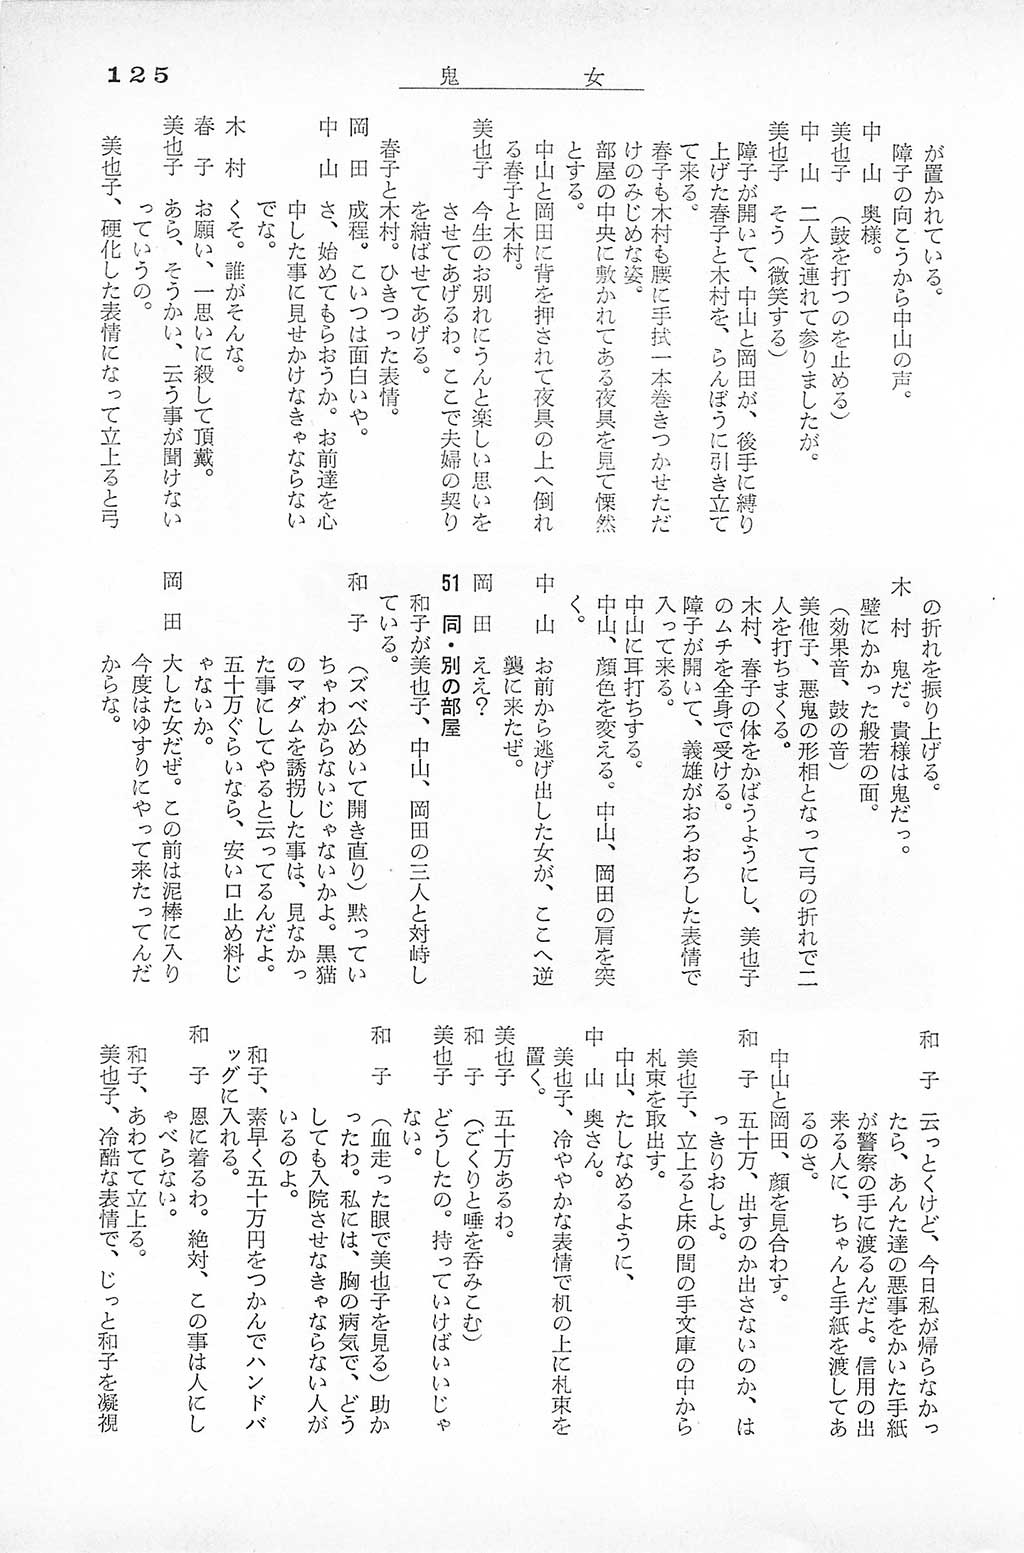 125
鬼女
が置かれている。
障子の向こうから中山の声。
中山　奥様。
美也子　（鼓を打つのを止める）
中山　二人を連れて参りましたが。
美也子　そう（微笑する）
障子が開いて、中山と岡田が、後手に縛り
上げた春子と木村を、らんぼうに引き立て
て来る。
春子も木村も腰に手拭一本巻きつかせただ
けのみじめな姿。
部屋の中央に敷かれてある夜具を見て慄然
とする。
中山と岡田に背を押されて夜具の上へ倒れ
る春子と木村。
美也子　今生のお別れにうんと楽しい思いを
させてあげるわ。ここで夫婦の契り
を結ばせてあげる。
春子と木村。ひきつった表情。
岡田　成程。こいつは面白いや。
中山　さ、始めてもらおうか。お前達を心
中した事に見せかけなきゃならない
でな。
木村　くそ。誰がそんな。
春子　お願い、一思いに殺して頂戴。
美也子　あら、そうかい、云う事が聞けない
っていうの。
美也子、硬化した表情になって立上ると弓
の折れを振り上げる。
木村　鬼だ。貴様は鬼だっ。
壁にかかった般若の面。
（効果音、鼓の音）
美他子、悪鬼の形相となって弓の折れで二
人を打ちまくる。
木村、春子の体をかばうようにし、美也子
のムチを全身で受ける。
障子が開いて、義雄がおろおろした表情で
入って来る。
中山に耳打ちする。
中山、顔色を変える。中山、岡田の肩を突
く。
中山　お前から逃げ出した女が、ここへ逆
襲に来たぜ。
岡田　ええ？
51　同・別の部屋
和子が美也子、中山、岡田の三人と対峙し
ている。
和子　（ズベ公めいて開き直り）黙ってい
ちゃわからないじゃないかよ。黒猫
のマダムを誘拐した事は、見なかっ
た事にしてやると云ってるんだよ。
五十万ぐらいなら、安い口止め料じ
ゃないか。
岡田　大した女だぜ。この前は泥棒に入り
今度はゆすりにやって来たってんだ
からな。
和子　云っとくけど、今日私が帰らなかっ
たら、あんた達の悪事をかいた手紙
が警察の手に渡るんだよ。信用の出
来る人に、ちゃんと手紙を渡してあ
るのさ。
中山と岡田、顔を見合わす。
和子　五十万、出すのか出さないのか、は
っきりおしよ。
美也子、立上ると床の間の手文庫の中から
札束を取出す。
中山、たしなめるように、
中山　奥さん。
美也子、冷ややかな表情で机の上に札束を
置く。
美也子　五十万あるわ。
和子　（ごくりと唾を呑みこむ）
美也子　どうしたの。持っていけばいいじゃ
ない。
和子　（血走った眼で美也子を見る）助か
ったわ。私には、胸の病気で、どう
しても入院させなきゃならない人が
いるのよ。
和子、素早く五十万円をつかんでハンドバ
ッグに入れる。
和子　恩に着るわ。絶対、この事は人にし
ゃべらない。
和子、あわてて立上る。
美也子、冷酷な表情で、じっと和子を凝視